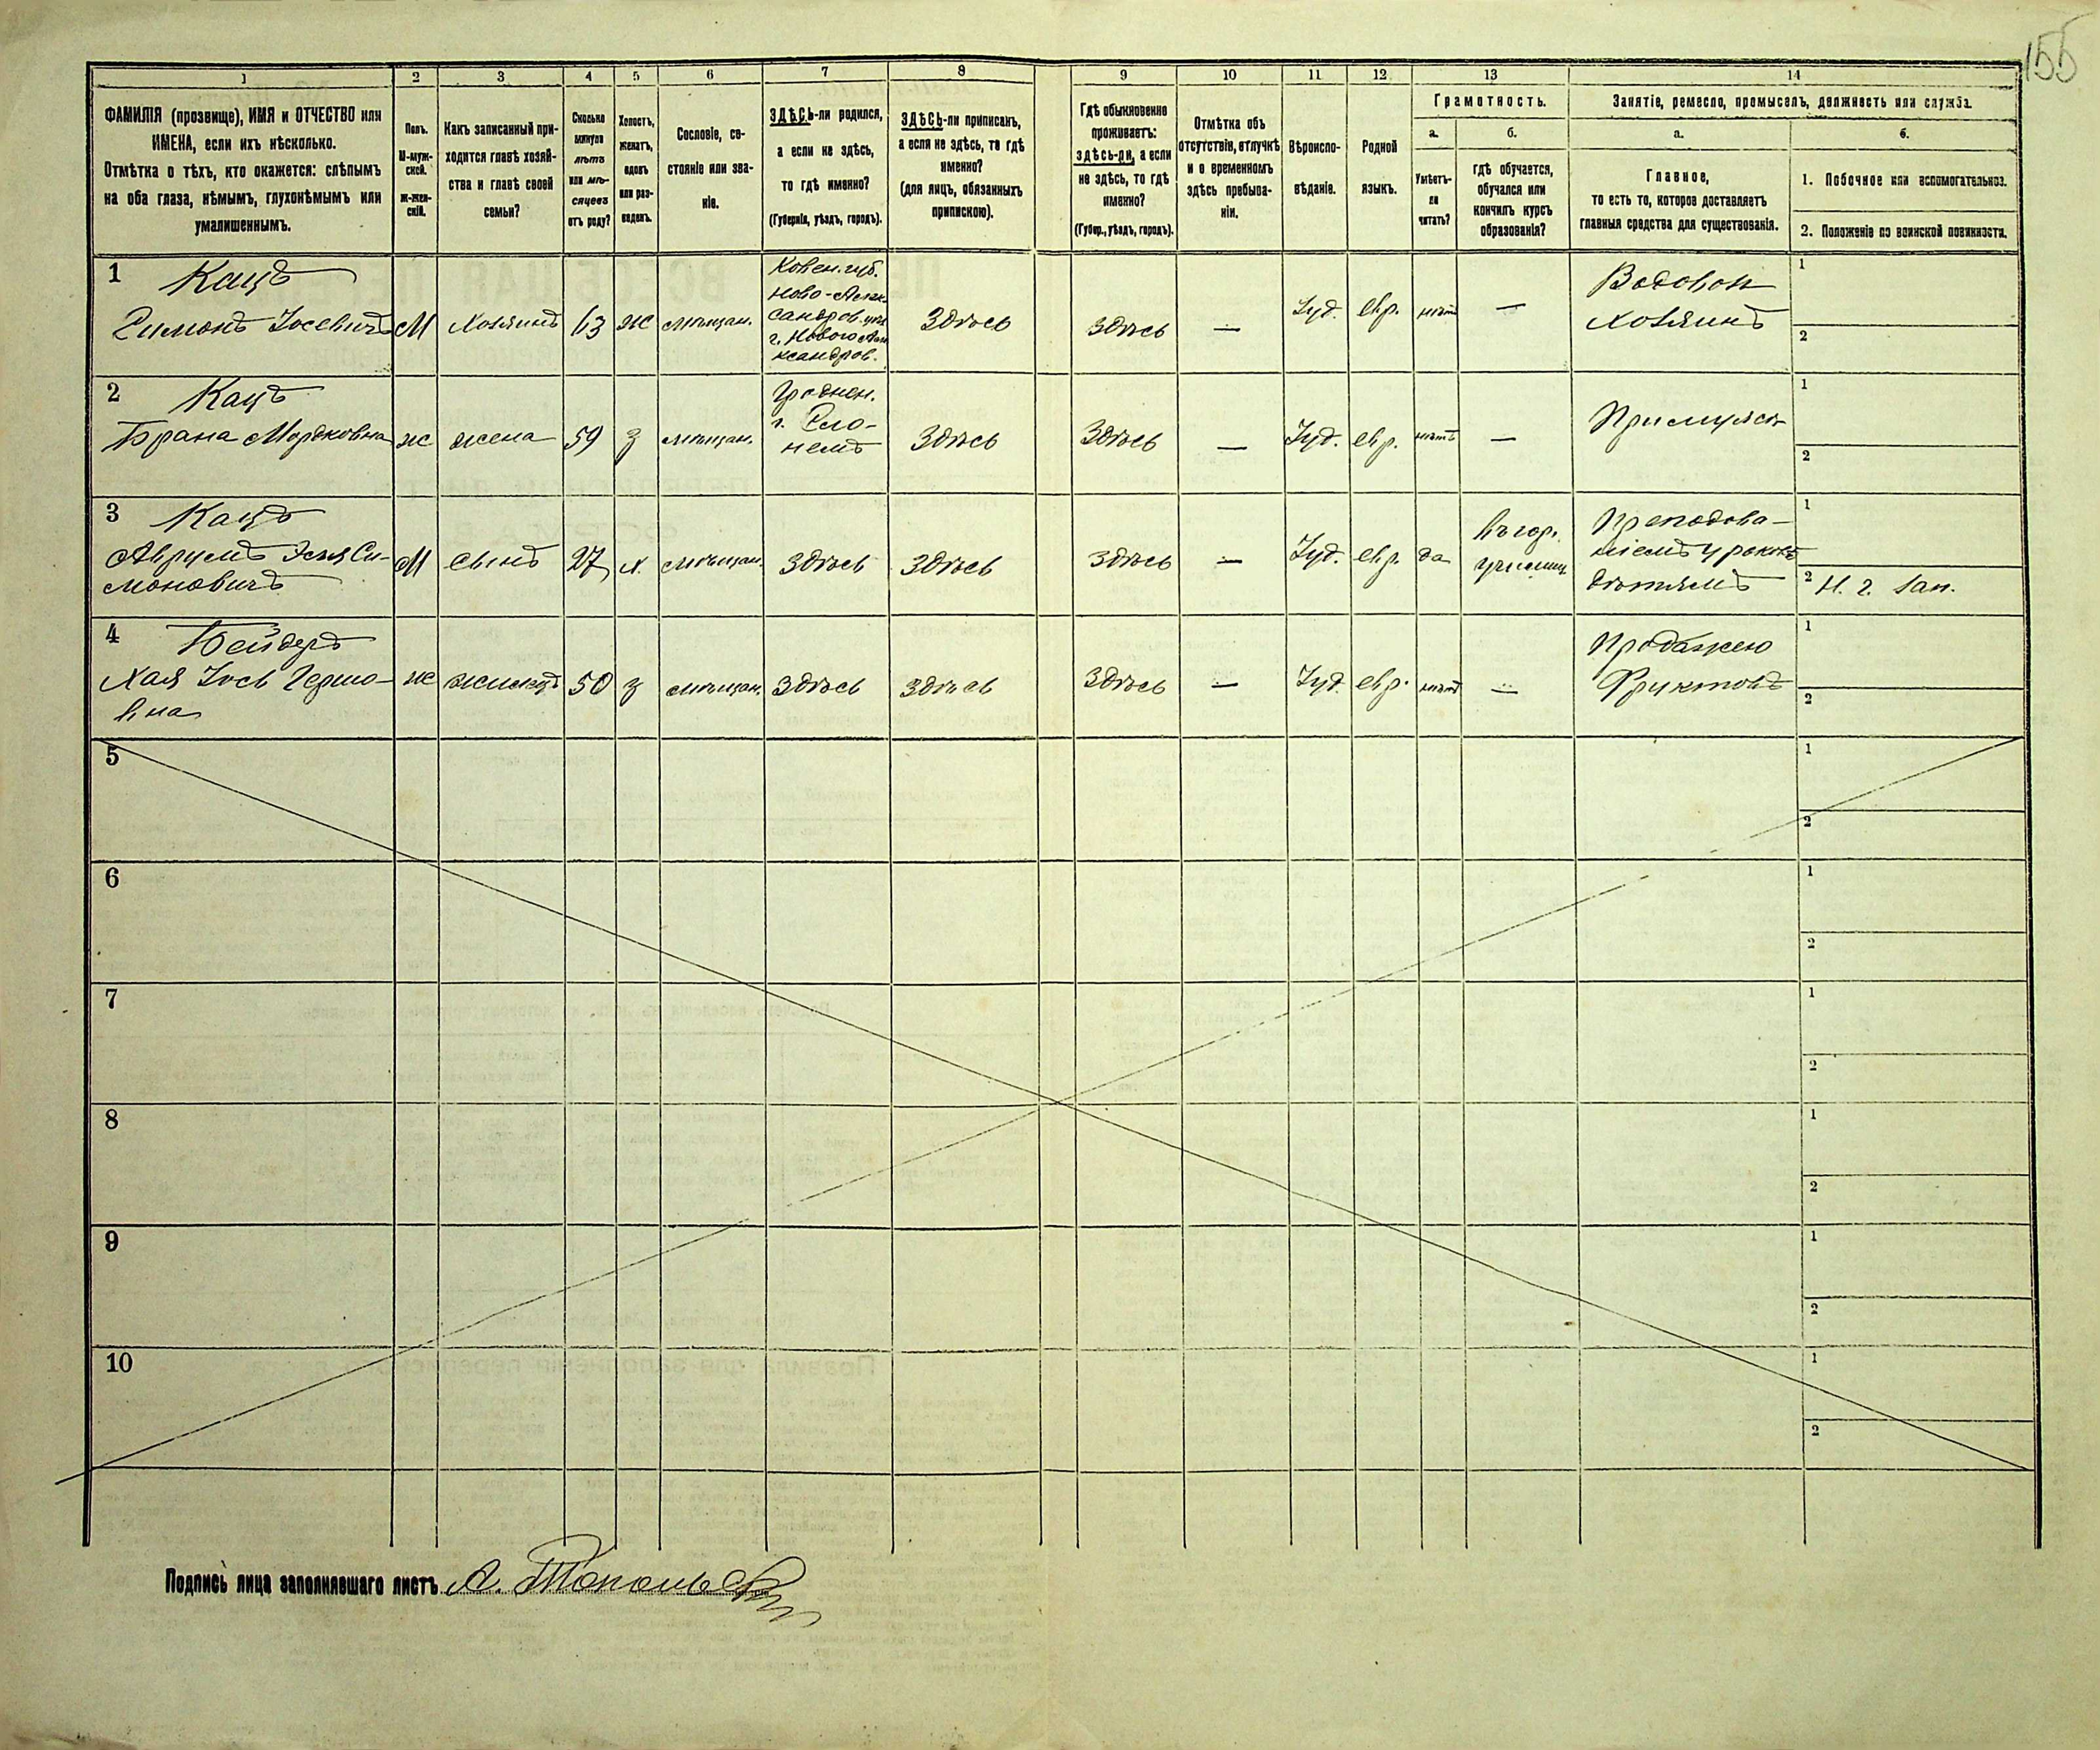 155
1 2 3 4 5 6 7 8 9 10 11 12 13 14
ФАМИЛІЯ (прозвище), ИМЯ и ОТЧЕСТВО или
ИМЕНА, если ихъ нѣсколько.
Отмѣтка о тѣхъ, кто окажется: слѣпымъ
на оба глаза, нѣмымъ, глухонѣмымъ или
умалишеннымъ.
Полъ.
М-муж-
ской.
Ж-жен-
скій.
Какъ записанный при-
ходится главѣ хозяй-
ства и главѣ своей
семьи?
Сколько
минуло
лѣтъ
или мѣ-
сяцевъ
отъ роду?
Холостъ,
женатъ,
вдовъ
или раз-
веденъ.
Сословіе, со-
стояніе или зва-
ніе.
ЗДѢСЬ-ли родился,
а если не здѣсь,
то гдѣ именно?
(Губернія, уѣздъ, городъ).
ЗДѢСЬ-ли приписанъ,
а если не здѣсь, то гдѣ
именно?
(для лицъ, обязанныхъ
припискою).
Гдѣ обыкновенно
проживаетъ:
здѣсь-ли, а если
не здѣсь, то гдѣ
именно?
(Губер., уѣздъ, городъ).
Отмѣтка объ
отсутствіи, отлучкѣ
и о временномъ
здѣсь пребыва-
ніи.
Вѣроиспо-
вѣданіе.
Родной
языкъ.
Грамотность.
а.
Умѣетъ-
ли
читать?
б.
гдѣ обучается,
обучался или
кончилъ курсъ
образованія?
Занятіе, ремесло, промыселъ, должность или служба.
а.
Главное,
то есть то, которое доставляетъ
главныя средства для существованія.
б.
1. Побочное или вспомогательное.
2. Положеніе по воинской повинности.
1 Кацъ
Симонъ Іосевичъ
М
хозяинъ
63
ж
мѣщан.
Ковен. губ.
Ново-Алек-
сандров. уѣз
г. Новоале
ксандров.
Здѣсь
здѣсь
—
Іуд.
евр.
нѣтъ
—
Водовоз
хозяинъ
1
2
2 Кацъ
Брана Мордковна
ж
жена
59
з
мѣщан.
Гроднен.
г. Сло-
нимъ
Здѣсь
Здѣсь
—
Іуд.
евр.
нѣтъ
—
При мужѣ
1
2
3 Кацъ
Аврумъ Эсья Си-
моновичъ
М
сынъ
27
х.
мѣщан.
Здѣсь
Здѣсь
Здѣсь
—
Іуд.
евр.
да
въ гор.
училищ
Преподова-
ніемъ уроковъ
дѣтямъ
1
2 Н. г. зап.
4 Бейдеръ
Хая Іось Гершо-
вна
ж
жилецъ
50
з
мѣщан.
Здѣсь
Здѣсь
Здѣсь
—
Іуд.
евр.
нѣтъ
—
Продажею
Фруктовъ
1
2
5
1
2
6
1
2
7
1
2
8
1
2
9
1
2
10
1
2
Подпись лица заполнявшаго листъ А. Топольскій